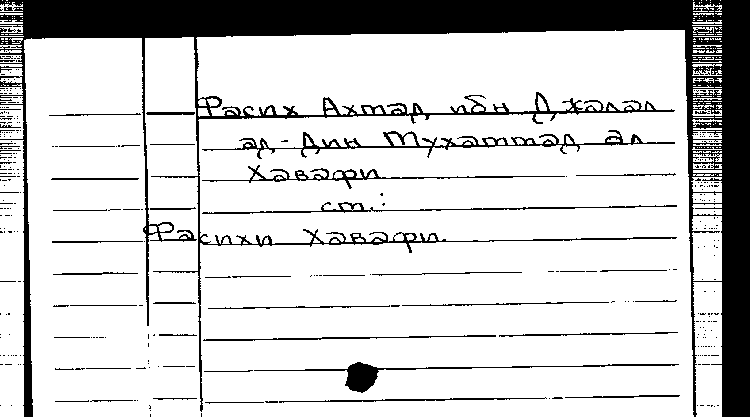 Фасих Ахмад ибн Джалал
ад-Дин Мухаммад ал
Хавафи
см.:
Фасихи Хавафи.